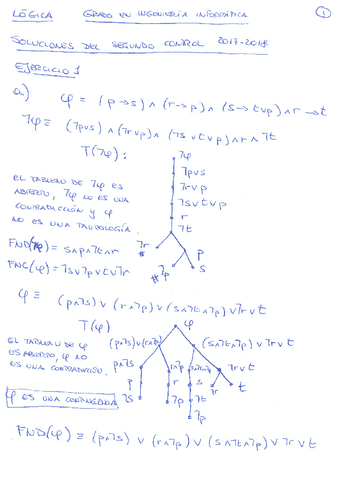 LÓGICA GRADO EN INGENIERÍA INFORMÁTICA 1
SOLUCIONES DEL SEGUNDO CONTROL 2017-2018
EJERCICIO 1
a) φ = (p→s) ∧ (r→p) ∧ (s→t∨p) ∧ r → t
¬φ ≡ (¬p∨s) ∧ (¬r∨p) ∧ (¬s∨t∨p) ∧ r ∧ ¬t
T(¬φ):
¬φ
¬p∨s
¬r∨p
¬s∨t∨p
r
¬t
EL TABLEAU DE ¬φ ES
ABIERTO, ¬φ NO ES UNA
CONTRADICCIÓN Y φ
NO ES UNA TAUTOLOGÍA.
¬r p
# ¬p s
#
FND(¬φ) ≡ s∧p∧¬t∧r
FNC(φ) ≡ ¬s∨¬p∨t∨¬r
φ ≡ (p∧¬s) ∨ (r∧¬p) ∨ (s∧¬t∧¬p) ∨ ¬r∨t
T(φ)
φ
(p∧¬s)∨(r∧¬p) (s∧¬t∧¬p)∨¬r∨t
EL TABLEAU DE φ
ES ABIERTO, φ NO
ES UNA CONTRADICCIÓN.
p∧¬s r∧¬p s∧¬t∧¬p ¬r∨t
p r s ¬r t
¬s ¬p ¬t
¬p
φ ES UNA CONTINGENCIA
FND(φ) ≡ (p∧¬s) ∨ (r∧¬p) ∨ (s∧¬t∧¬p) ∨ ¬r∨t